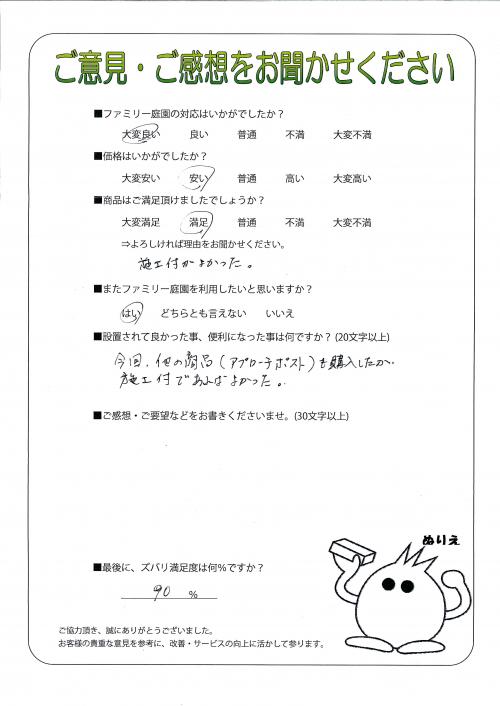 ご意見・ご感想をお聞かせください
■ファミリー庭園の対応はいかがでしたか？
大変良い 良い 普通 不満 大変不満
■価格はいかがでしたか？
大変安い 安い 普通 高い 大変高い
■商品はご満足頂けましたでしょうか？
大変満足 満足 普通 不満 大変不満
⇒よろしければ理由をお聞かせください。
施工付がよかった。
■またファミリー庭園を利用したいと思いますか？
はい どちらとも言えない いいえ
■設置されて良かった事、便利になった事は何ですか？(20文字以上)
今回、他の商品(アプローチポスト)も購入したが、
施工付であればよかった。
■ご感想・ご要望などをお書きくださいませ。(30文字以上)
ぬりえ
■最後に、ズバリ満足度は何％ですか？
90 ％
ご協力頂き、誠にありがとうございました。
お客様の貴重な意見を参考に、改善・サービスの向上に活かして参ります。